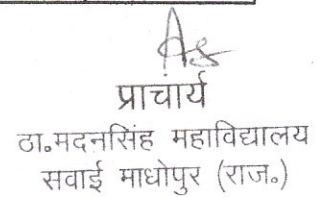 प्राचार्य
ठा॰मदनसिंह महाविद्यालय
सवाई माधोपुर (राज॰)